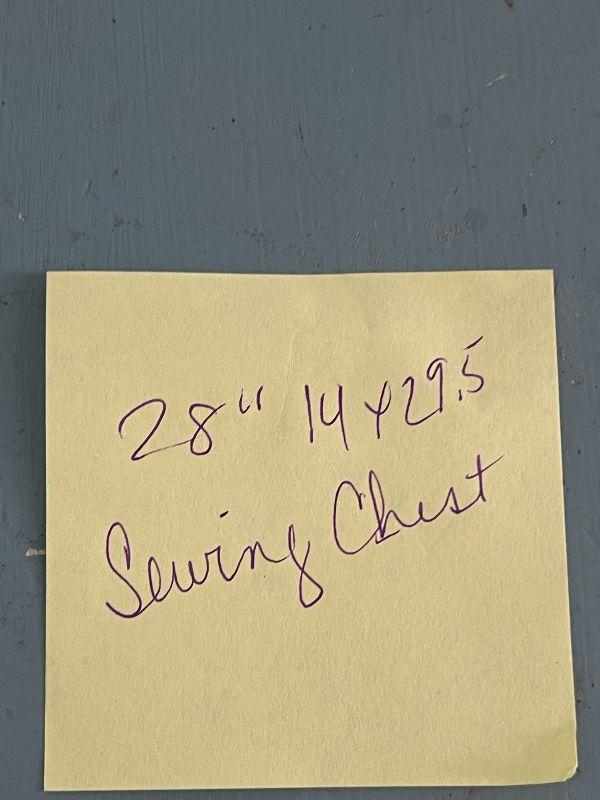 28" 14 x 29.5
Sewing Chest